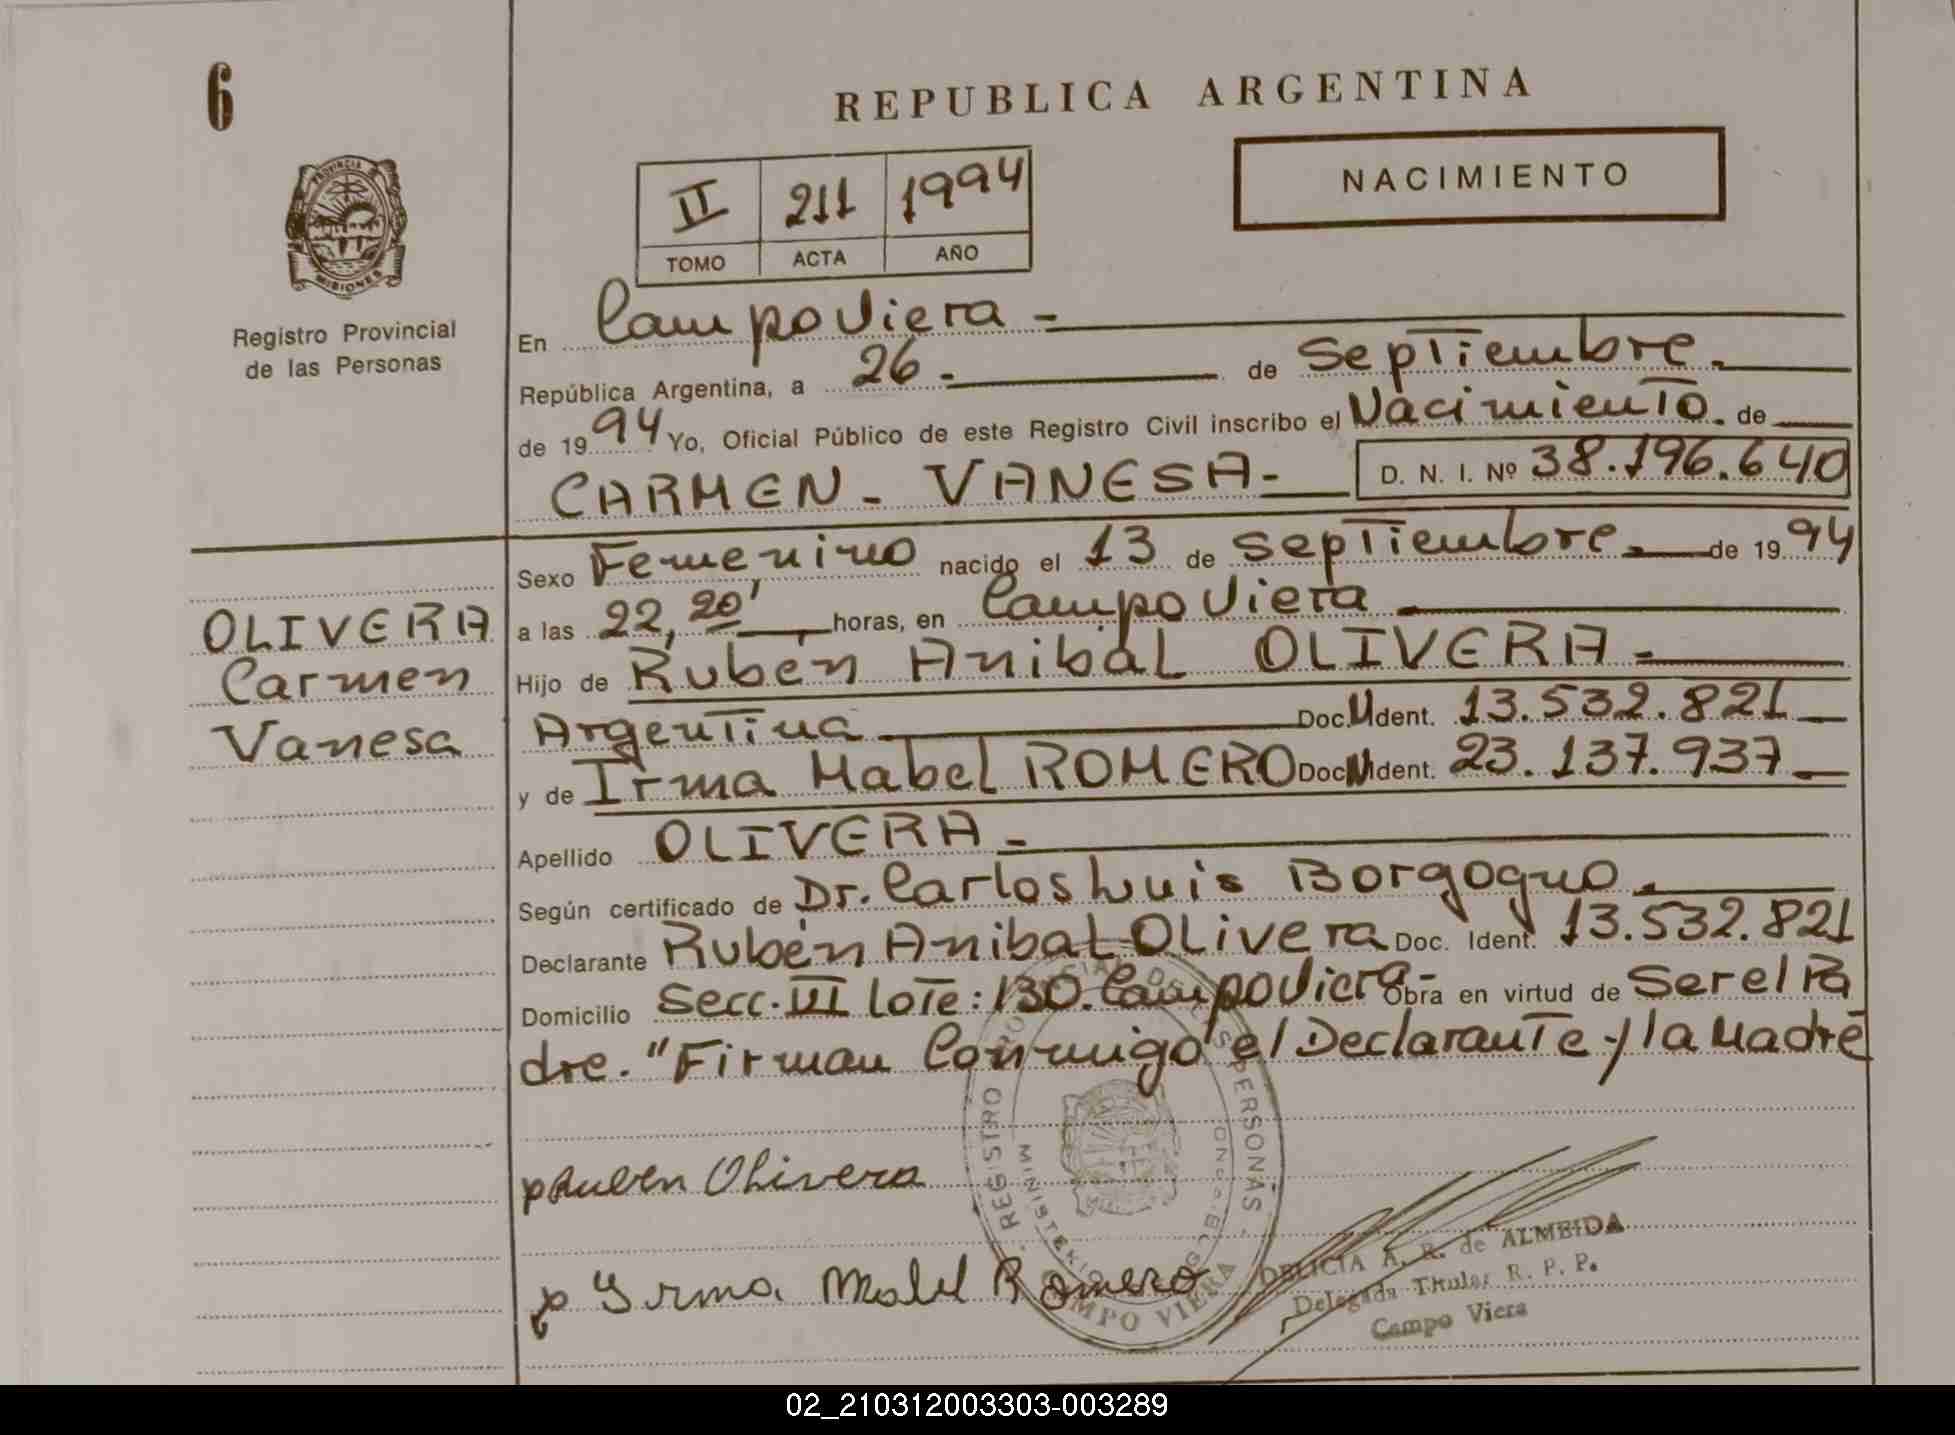 6
REPUBLICA ARGENTINA
NACIMIENTO
II 211 1994
TOMO ACTA AÑO
PROVINCIA DE
MISIONES
Registro Provincial
de las Personas
En Campo Viera -
República Argentina, a 26 - de Septiembre.
de 1994 Yo, Oficial Público de este Registro Civil inscribo el Nacimiento. de
CARMEN - VANESA - D. N. I. Nº 38.196.640
Sexo Femenino nacido el 13 de septiembre. de 1994
OLIVERA
Carmen
Vanesa
a las 22, 20' horas, en Campo Viera
Hijo de Rubén Anibal OLIVERA -
Argentina Doc. N Ident. 13.532.821
y de Irma Mabel ROMERO Doc N Ident. 23.137.937
Apellido OLIVERA -
Según certificado de Dr. Carlos Luis Borgogno.
Declarante Rubén Anibal Olivera Doc. Ident. 13.532.821
Domicilio Secc. VI lote: 130. Campo Viera - Obra en virtud de Ser el Pa
dre. "Firman Conmigo el Declarante y la Madre
p Ruben Olivera
p Yrma Mabel Romero
REGISTRO PROVINCIAL DE LAS PERSONAS
MINISTERIO
CAMPO VIERA
DELICIA A. R. de ALMEIDA
Delegada Titular R. P. P.
Campo Viera
02_210312003303-003289